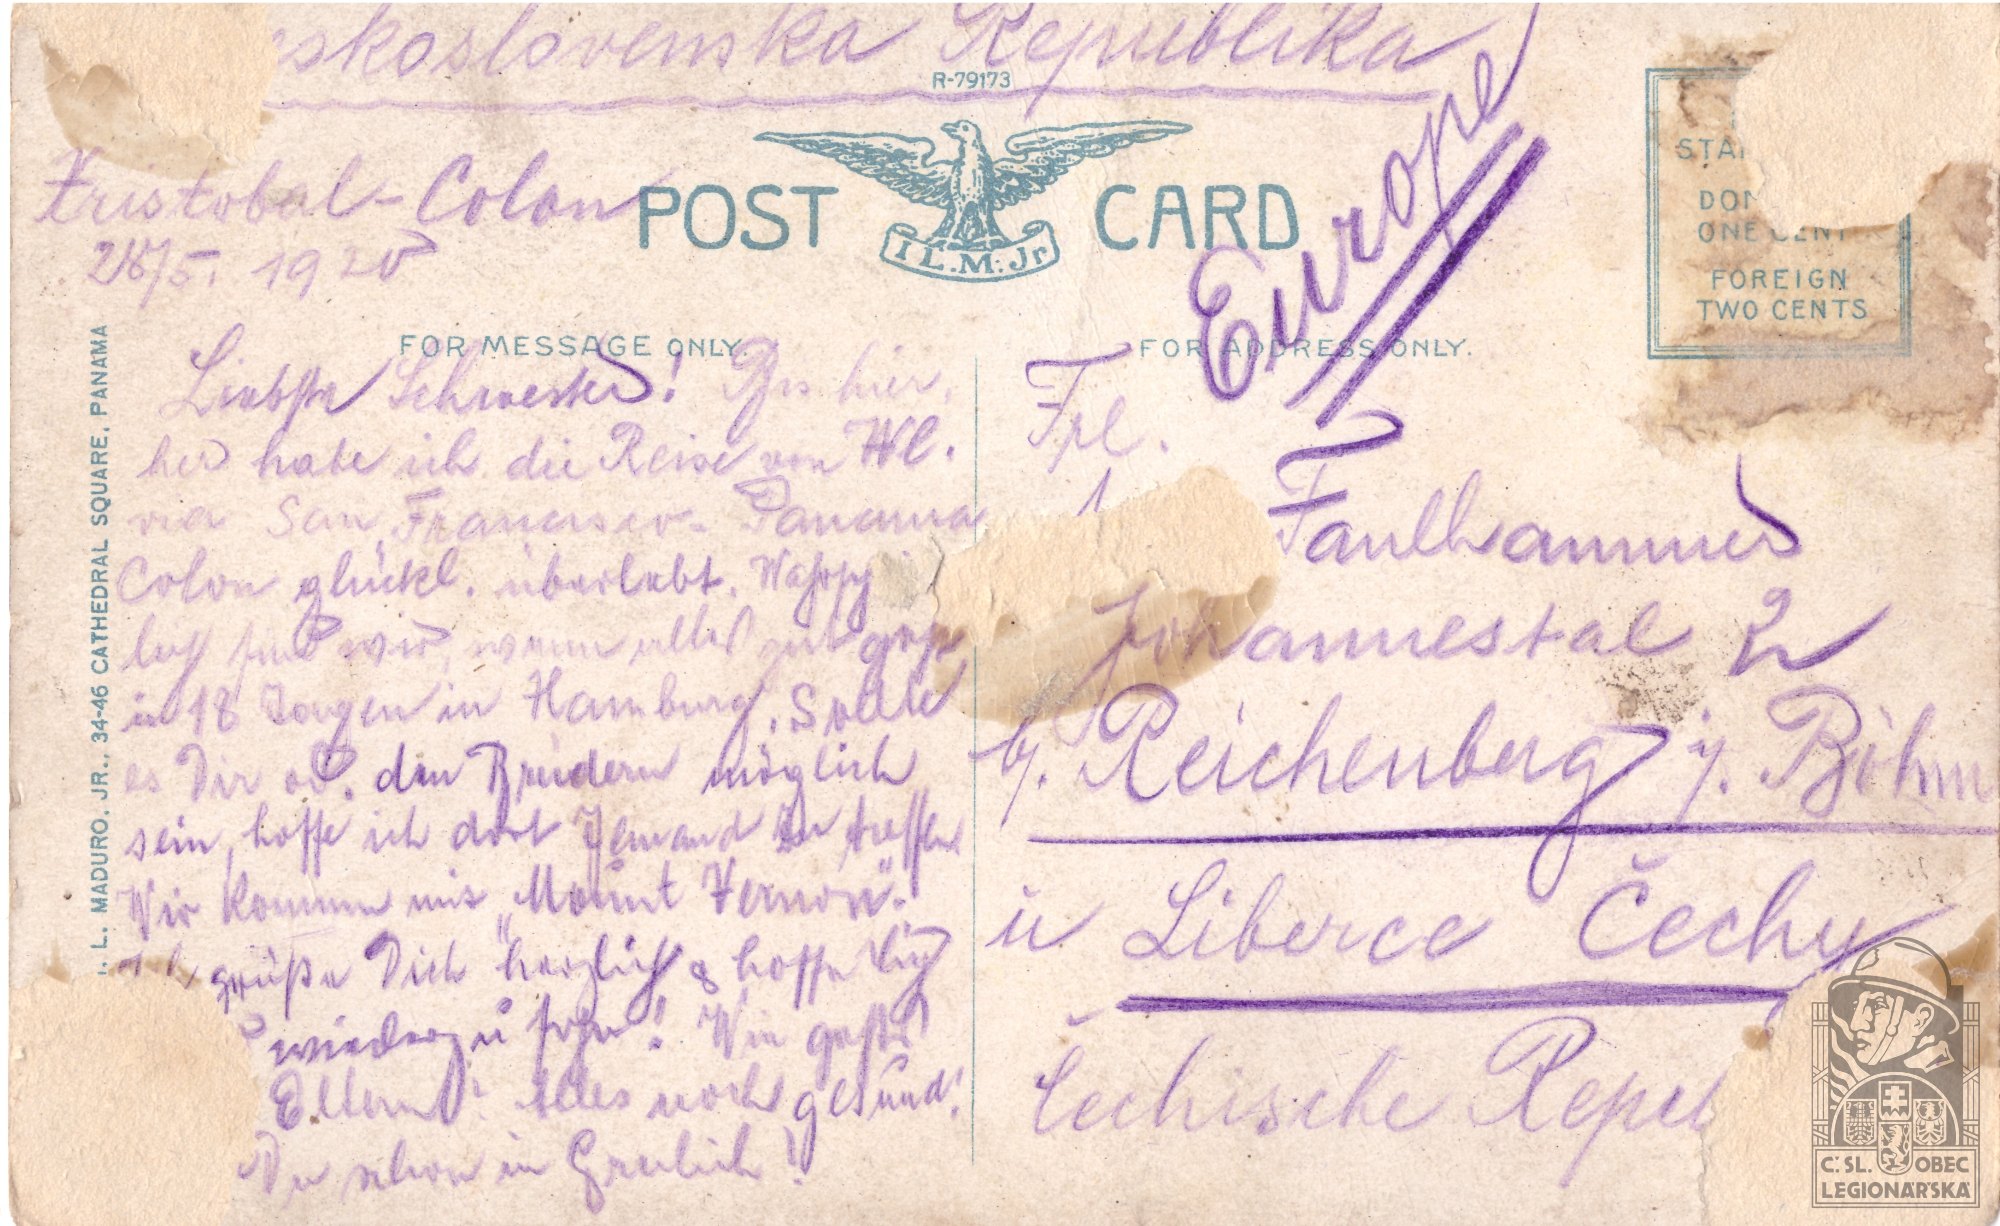 eskoslovenska Republika
R-79173
Kristobal-Colon
26/5. 1920
POST CARD
I.L.M. Jr.
Europe
STA
DOM
ONE CENT
FOREIGN
TWO CENTS
FOR MESSAGE ONLY.
FOR ADDRESS ONLY.
I. L. MADURO, JR., 34-46 CATHEDRAL SQUARE, PANAMA
Liebste Schwester! Bis hier,
her habe ich die Reise von Wl.
via San Francisco- Panama
Colon glückl. überlebt. Wahrsch
lich sind wir, wenn alles gut geht,
in 18 Tagen in Hamburg. Sollte
es Dir od. den Brüdern möglich
sein, hoffe ich dort Jemand zu treffen
Wir kommen mit "Mount Vernon".
grüße Dich herzlich & hoffe Dich
wiederzusehn! Wie geht's
Eltern? Alles noch gesund?
Du schon in Greilich!
Frl.
Faulhammer
Johannestal 2
b/. Reichenberg i/. Böhm
u Liberce Čechy
Čechische Repu
Č.SL. OBEC
LEGIONÁŘSKÁ